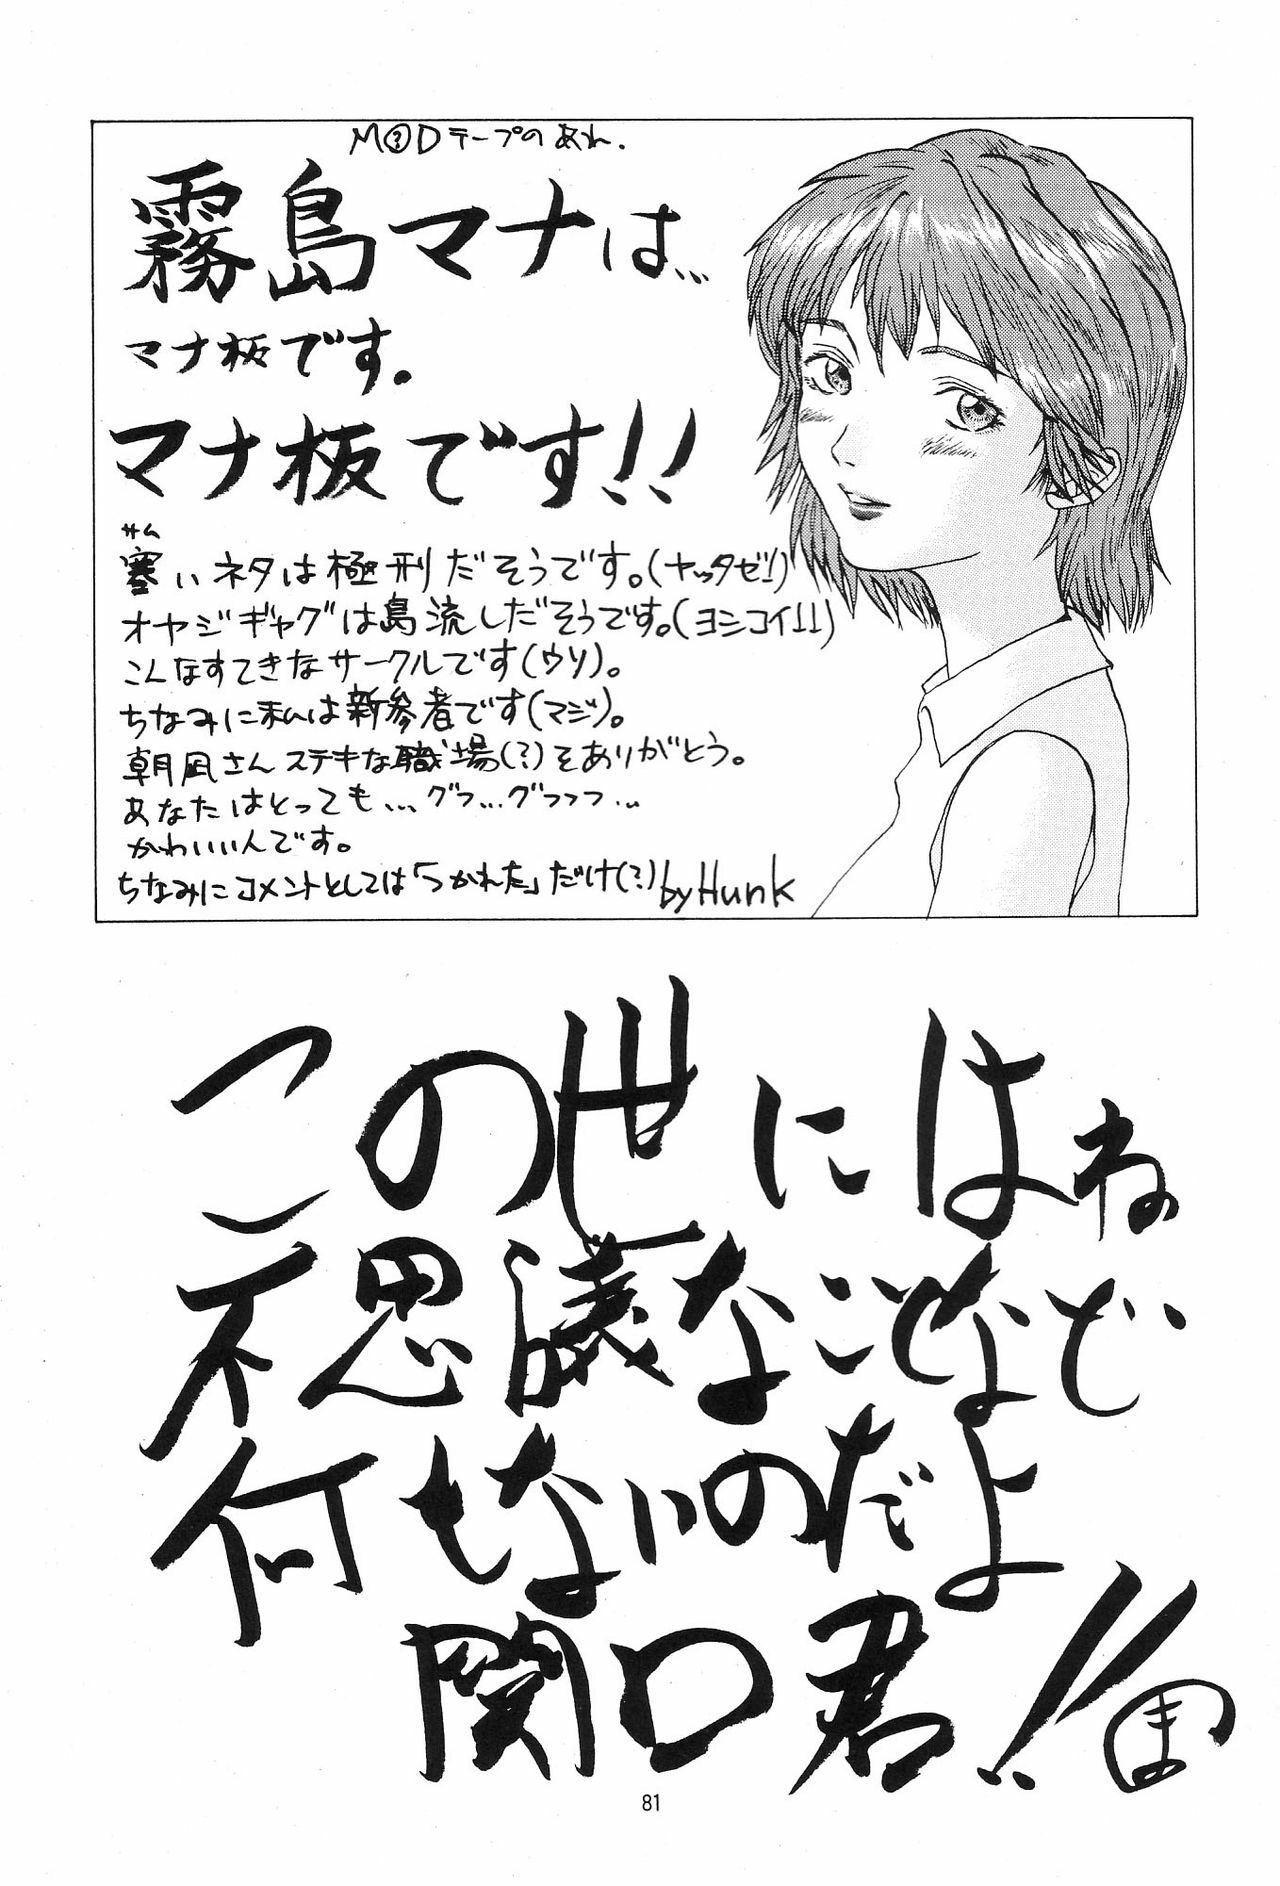 M?Dテープのあれ.
霧島マナは…
マナ板です。
マナ板です!!
サム
寒いネタは極刑だそうです。(ヤッタゼ!)
オヤジギャグは島流しだそうです。(ヨシコイ!!)
こんなすてきなサークルです(ウソ)。
ちなみに私は新参者です(マジ)。
朝凪さんステキな職場(?)をありがとう。
あなたはとっても…グフ…グフフフ…
かわいい人です。
ちなみにコメントとしては「つかれた」だけ(?)
by Hunk
この世にはね
不思議なことなど
何もないのだよ
関口君!!
81